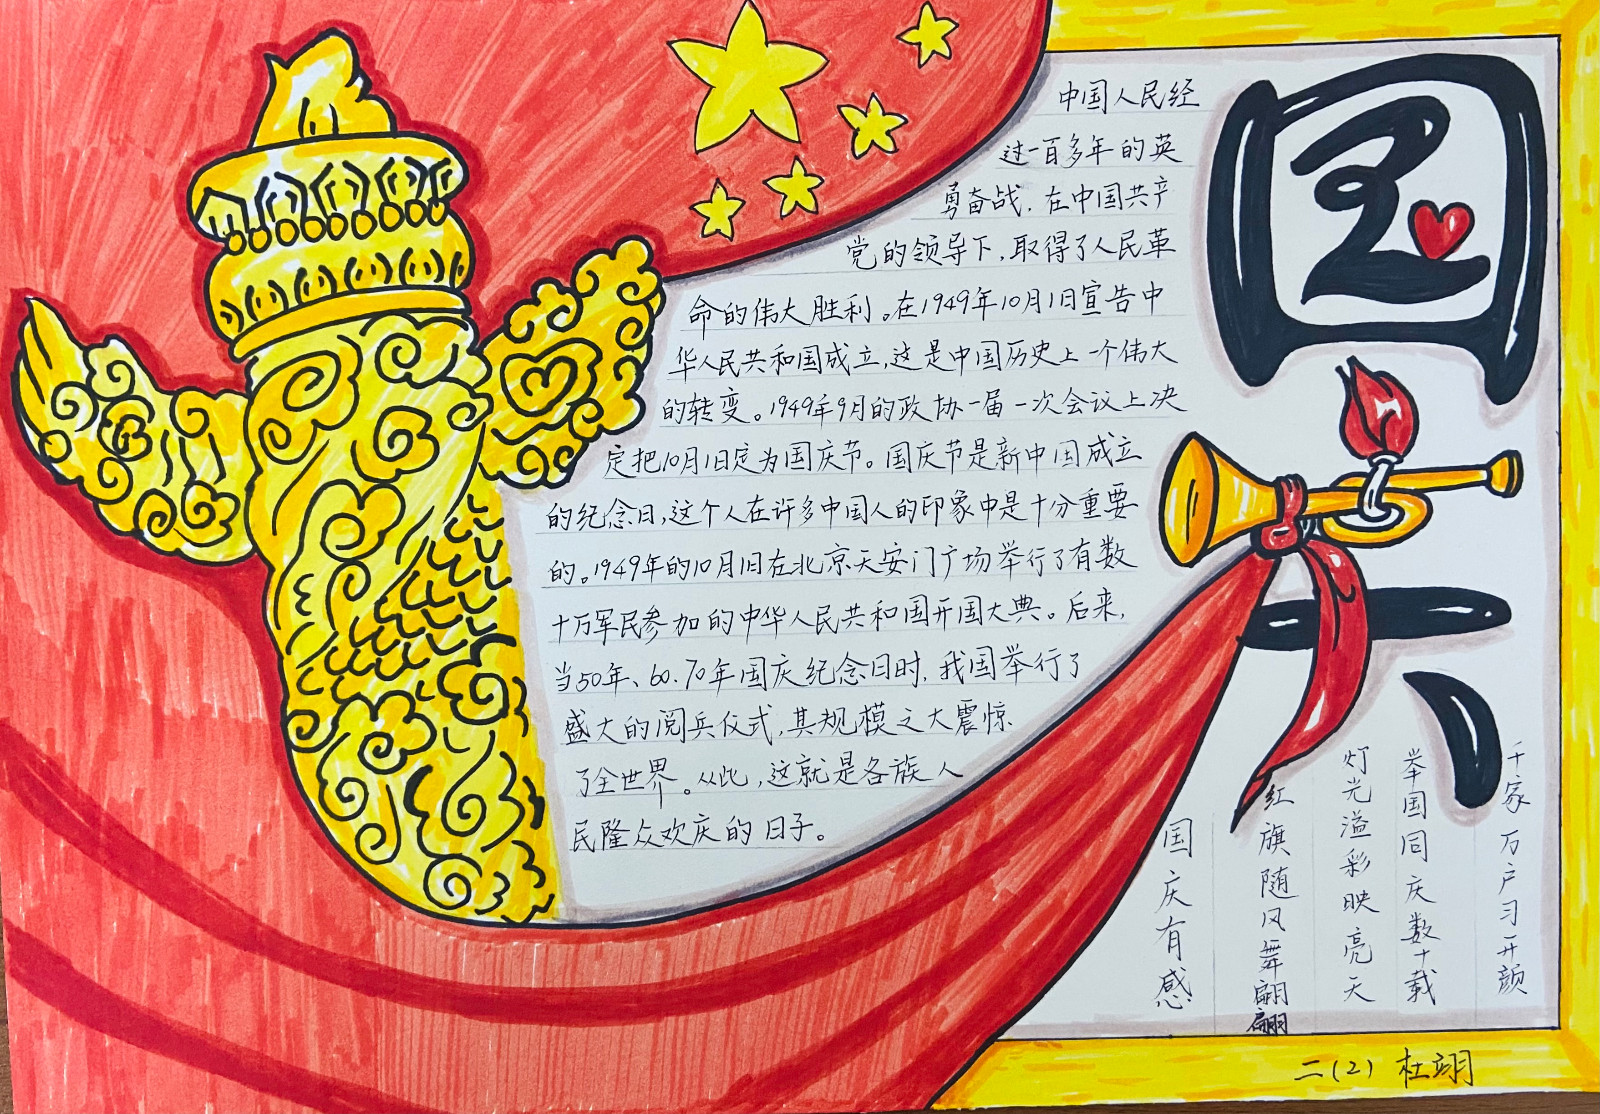 国庆
中国人民经
过一百多年的英
勇奋战.在中国共产
党的领导下,取得了人民革
命的伟大胜利。在1949年10月1日宣告中
华人民共和国成立,这是中国历史上一个伟大
的转变。1949年9月的政协一届一次会议上决
定把10月1日定为国庆节。国庆节是新中国成立
的纪念日,这个人在许多中国人的印象中是十分重要
的。1949年的10月1日在北京天安门广场举行了有数
十万军民参加的中华人民共和国开国大典。后来,
当50年、60.70年国庆纪念日时,我国举行了
盛大的阅兵仪式,其规模之大震惊
了全世界。从此,这就是各族人
民隆众欢庆的日子。
千家万户习开颜
举国同庆数十载
灯光溢彩映亮天
红旗随风舞翩翩
国庆有感
二(2) 杜翊